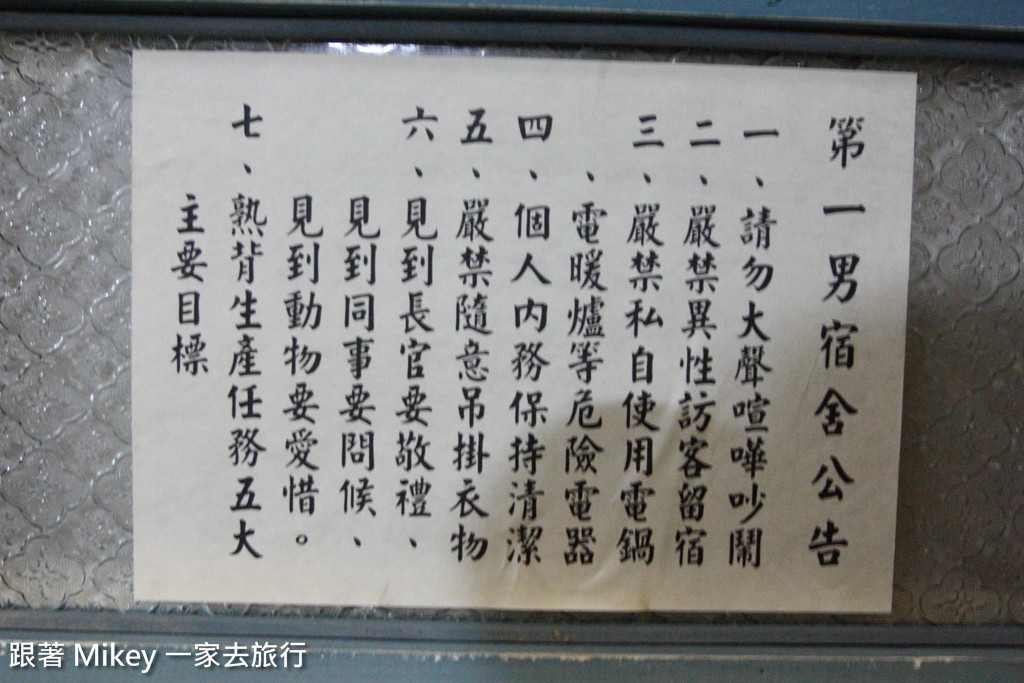 第一男宿舍公告
一、請勿大聲喧嘩吵鬧
二、嚴禁異性訪客留宿
三、嚴禁私自使用電鍋
、電暖爐等危險電器
四、個人內務保持清潔
五、嚴禁隨意吊掛衣物
六、見到長官要敬禮、
見到同事要問候、
見到動物要愛惜。
七、熟背生產任務五大
主要目標
跟著 Mikey 一家去旅行